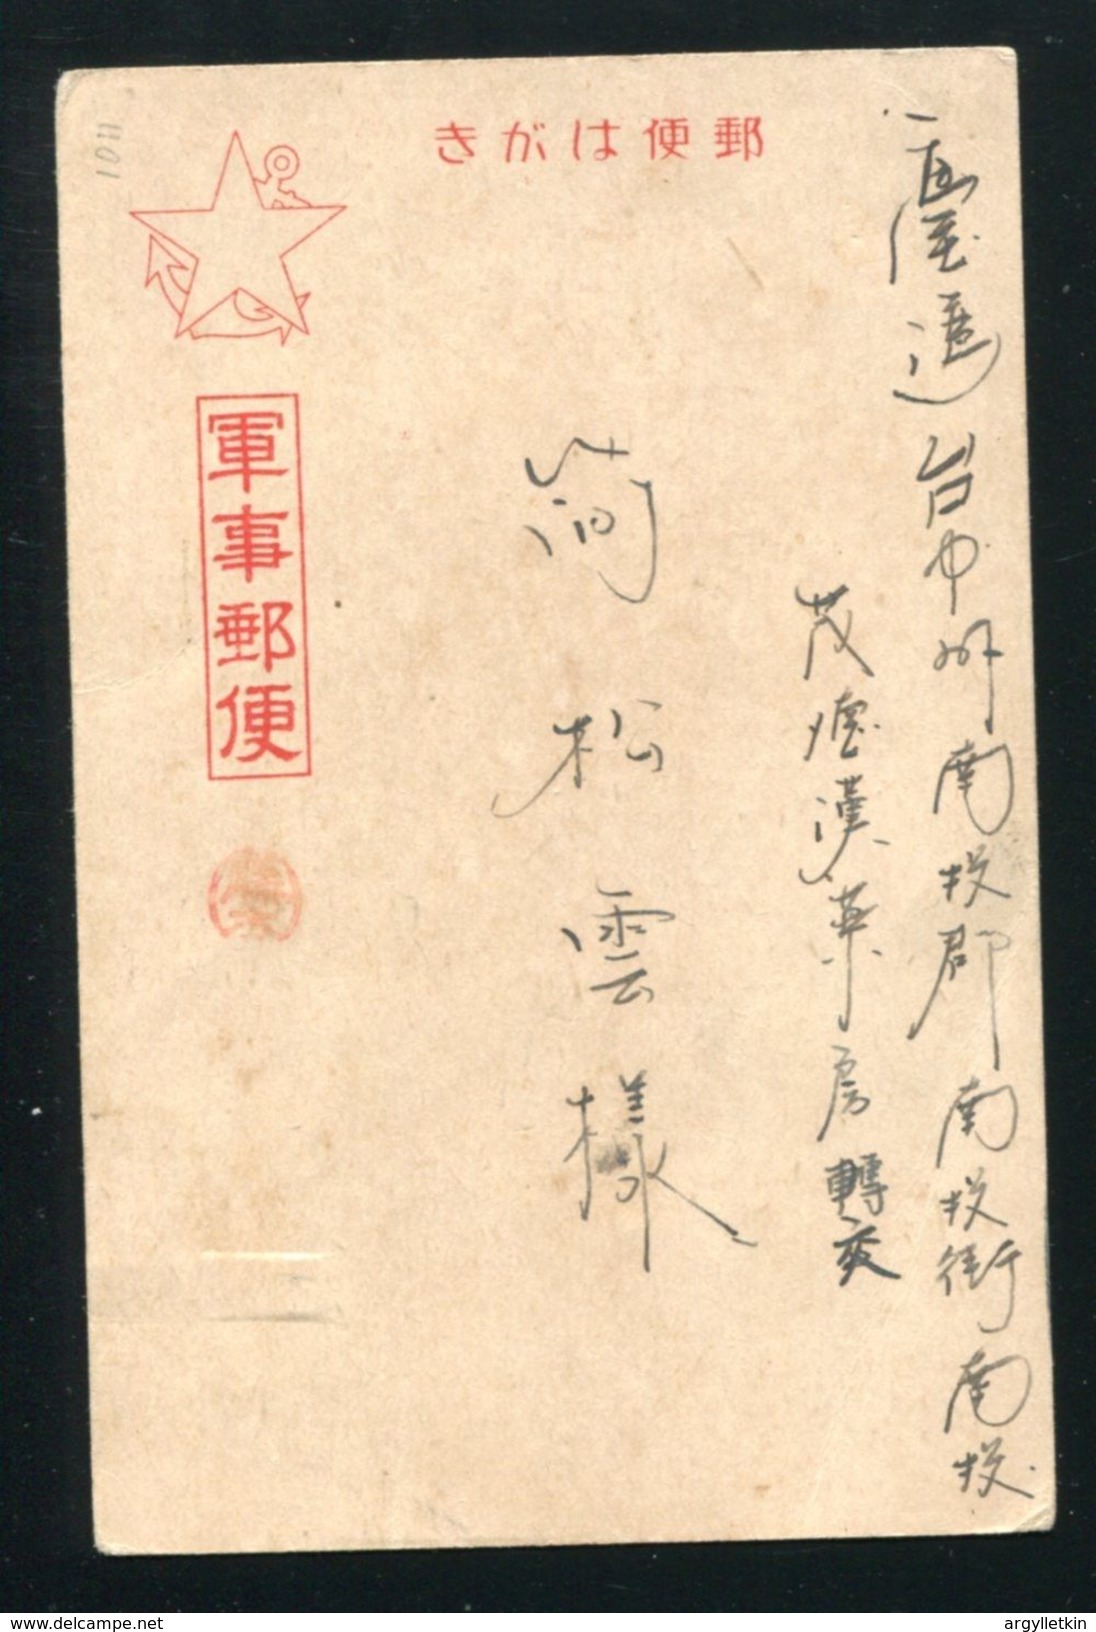 郵便はがき
臺灣台中州南投郡南投街南投
茂煙漢藥房轉交
簡松雲樣
軍事郵便
1011
argylletkin